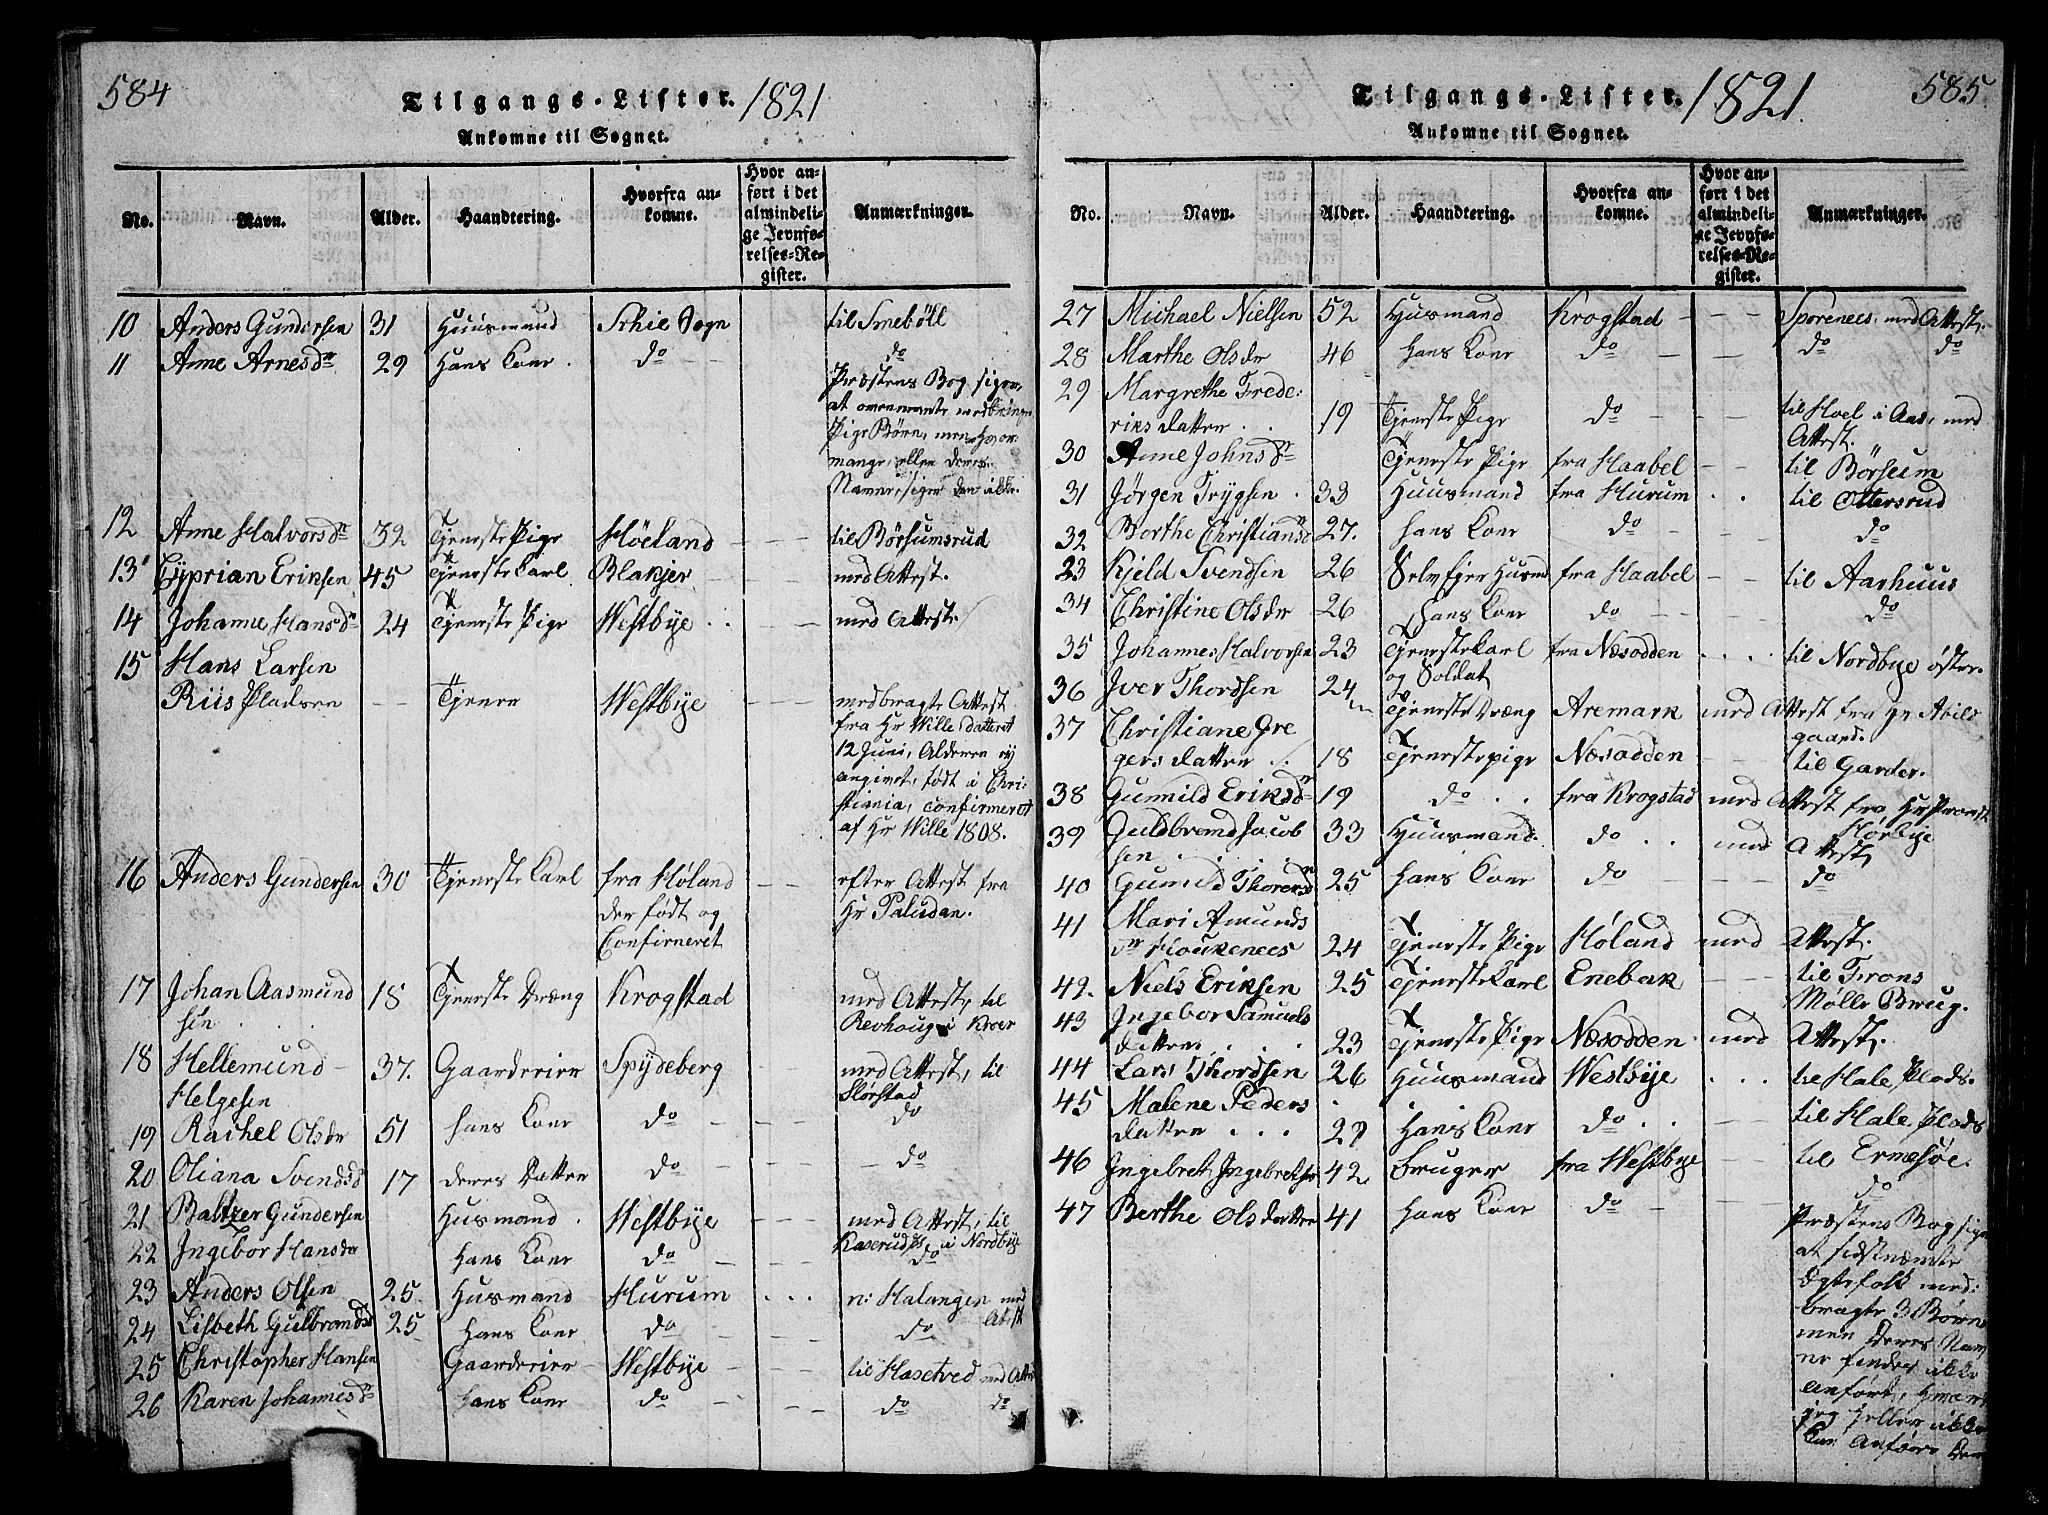 584
Tilgangs-Lister. 1821
Ankomne til Sognet.
No. Navn. Alder. Haandtering. Hvorfra ankomne. Hvor anført i det almindelige Jevnførelses-Register. Anmærkninger.
10 Anders Gundersen 31 Huusmand Schie Sogn til Smebøll
11 Anne Arnesdr 29 Hans Kone do do
Præstens Bog siger,
at ovennævnte medbringe
Pige Børn, men hvor
mange, eller deres
Navne, siger den ikke.
12 Anne Halvorsdr 32 Tjeneste Pige Høeland til Børsumsrud
13 Cyprian Eriksen 45 Tjeneste Karl Blakjer med Attest.
14 Johanne Hansdr 24 Tjeneste Pige Westbye med Attest.
15 Hans Larsen
Riis Pladsen Tjener Westbye medbragte Attest
fra Hr Wille datteret
12 Juni, Alderen ey
angivet, født i Chri-
stiania, confirmeret
af Hr Wille 1808.
16 Anders Gundersen 30 Tjeneste Karl fra Høland efter Attest fra
der født og Hr Paludan.
Confirmeret
17 Johan Aasmund 18 Tjeneste Dræng Krogstad med Attest, til
sen Revhoug i Kroer
18 Hellemund 37. Gaardeier Spydeberg med Attest, til
Helgesen Slørstad
19 Rachel Olsdr 51 hans Kone do do
20 Oliana Svendsdr 17 deres Datter do do
21 Baltzer Gundersen Husmand Westbye med Attest, til
22 Ingebor Hansdr Hans Kone do do i Nordbye
23 Anders Olsen 25 Husmand Hurum n: Halangen med
24 Lisbeth Gulbrandsd 25 Hans Kone do do Attest
25 Christopher Hansen Gaardeier Westbye til Hasetved med Att
26 Karen Johannesdr hans Kone do do do
585
Tilgangs-Lister. 1821.
Ankomne til Sognet.
No. Navn. Alder. Haandtering. Hvorfra ankomne. Hvor anført i det almindelige Jevnførelses-Register. Anmærkninger.
27 Michael Nielsen 52 Husmand Krogstad Sporenees med Attest.
28 Marthe Olsdr 46 Hans Kone do do do
29 Margrethe Frede:
riks datter 19 Tjeneste Pige do til Hoel i Aas, med
Attest.
30 Anne Johnsdr Tjeneste Pige fra Haabel til Børsum
31 Jørgen Trygsen 33 Huusmand fra Hurum til Ottersrud
32 Berthe Christiansd 27. hans Kone do do
23 Kjeld Svendsen 26 Selveier Husmd fra Haabel til Aarhuus
34 Christine Olsdr 26 Hans Kone do do
35 Johannes Halvorsen 23 Tjeneste Karl fra Næsodden til Nordbye øster.
og Soldat
36 Iver Thordsen 24 Tjeneste Dræng Aremark med Attest fra Hr Abild
gaard.
37 Christiane Gre
gers datter 18 Tjenestepige Næsodden til Garder.
38 Gunnild Eriksdr 19 do fra Krogstad med Attest fra Hr Provst
Hørbye
39 Guldbrand Jacob 33 Huusmand. do med Attest
sen
40 Gunild Thoresdr 25 Hans Kone do do
41 Mari Amunds
dr Houkenees 24 Tjeneste Pige Høland med Attest.
42. Niels Eriksen 25 Tjeneste Karl Enebak til Frons
Mølle Brug.
43 Ingebor Samuels
datter 23 Tjeneste Pige Næsodden med Attest.
44 Lars Thordsen 26 Huusmand Westbye til Hale Plads.
45 Malene Peders
datter 29 Hans Kone do til Hale Plads
46 Ingebret Ingebretsen 42 bruger fra Westbye til Ermesøe.
47 Berthe Olsdatter 41 Hans Kone do do
Præstens Bog siger
at sidstnævnte
Egtefolk med:
bragte 3 Børn
men deres Nav
ne findes ikke
anført, hvorfor
jeg heller ikke
kan anføre dem